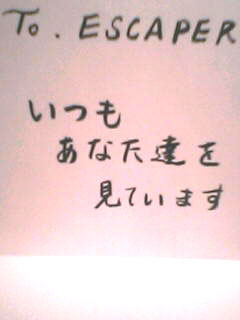 To. ESCAPER
いつも
あなた達を
見ています